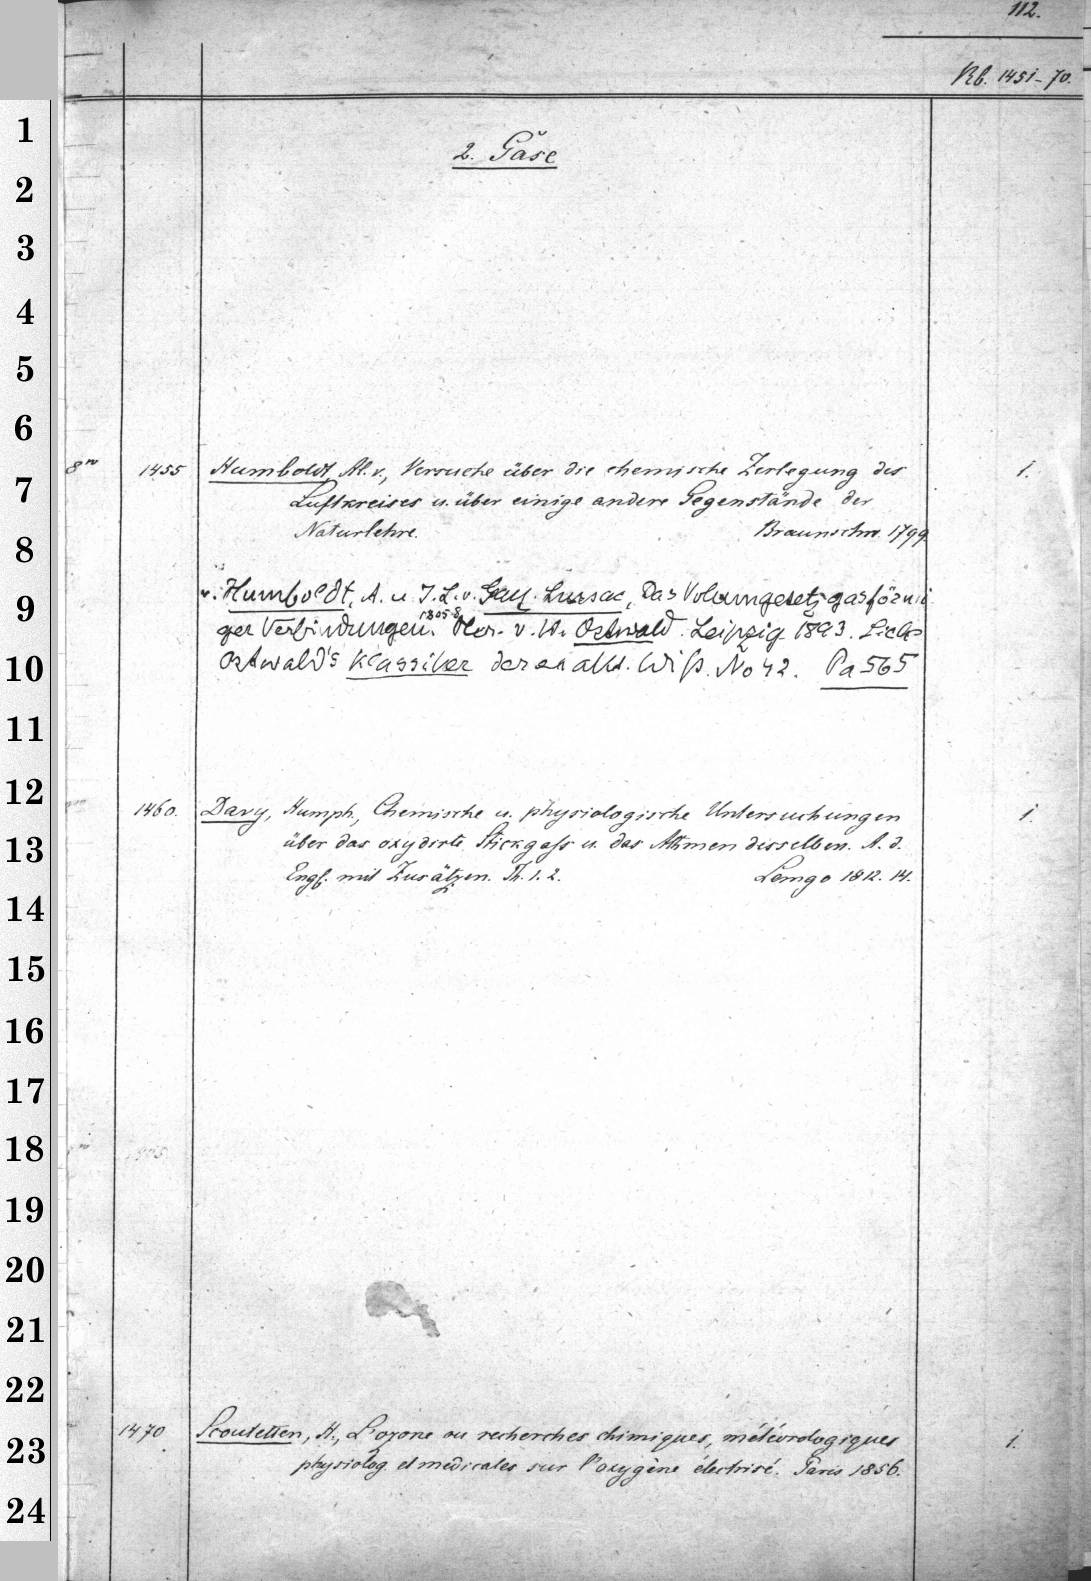 112.
Rb. 1451-70.
2. Gase
8vo 1455 Humboldt, Al. v., Versuche über die chemische Zerlegung des 1.
Luftkreises u. über einige andere Gegenstände der
Naturlehre. Braunschw. 1799.
v. Humboldt, A. u. J. L. v. Gay-Lussac, Das Volumgesetz gasförmi
ger Verbindungen. 1805-8. v. W. Ostwald. Leipzig 1893. Siehe
Ostwald's Klassiker der exakt. Wiss. No 42. Pa 565
1460. Davy, Humph., Chemische u. physiologische Untersuchungen 1.
über das oxydirte Stickgass u. das Athmen desselben. A. d.
Engl. mit Zusätzen. Th. 1. 2. Lemgo 1812. 14.
1470 Scoutetten, H., L'ozone ou recherches chimiques, météorologiques 1.
physiolog. et médicales sur l'oxygène électrisé. Paris 1856.
1
2
3
4
5
6
7
8
9
10
11
12
13
14
15
16
17
18
19
20
21
22
23
24